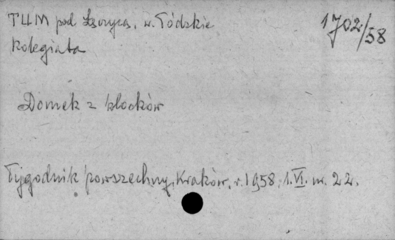 TUM pod Łęczycą, w. Łódzkie
1702/58
Kolegiata
Domek z klocków
Tygodnik powszechny, Kraków, r. 1958. 1.VI. nr. 22.